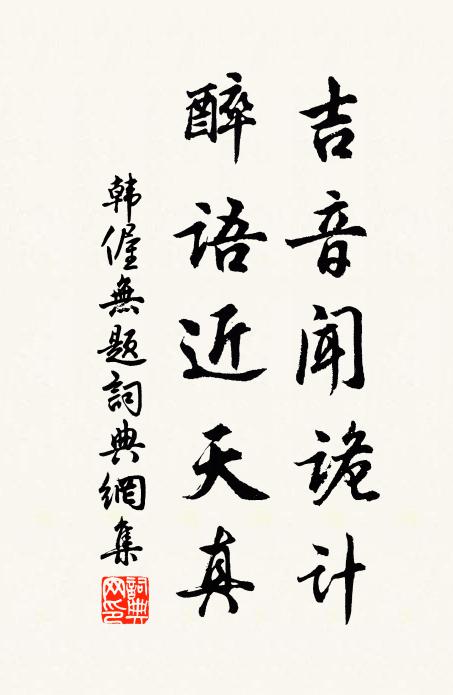 吉音闻诡计
醉语近天真
韩偓無题詞典網集
詞典网印